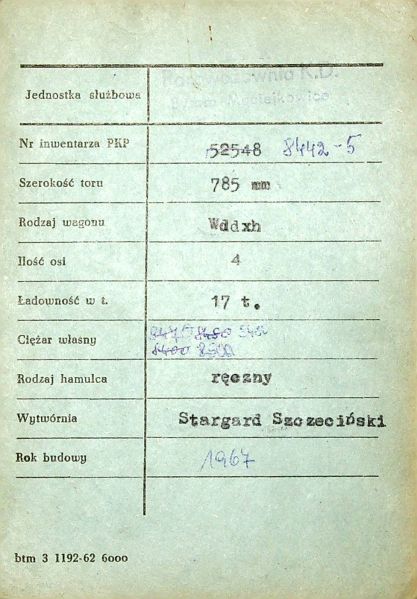 Parowozownia K.D.
Jednostka służbowa
Nr inwentarza PKP 52548 8442-5
Szerokość toru 785 mm
Rodzaj wagonu Wddxh
Ilość osi 4
Ładowność w t. 17 t.
Ciężar własny 8400
Rodzaj hamulca ręczny
Wytwórnia Stargard Szczeciński
Rok budowy 1967
btm 3 1192-62 6000